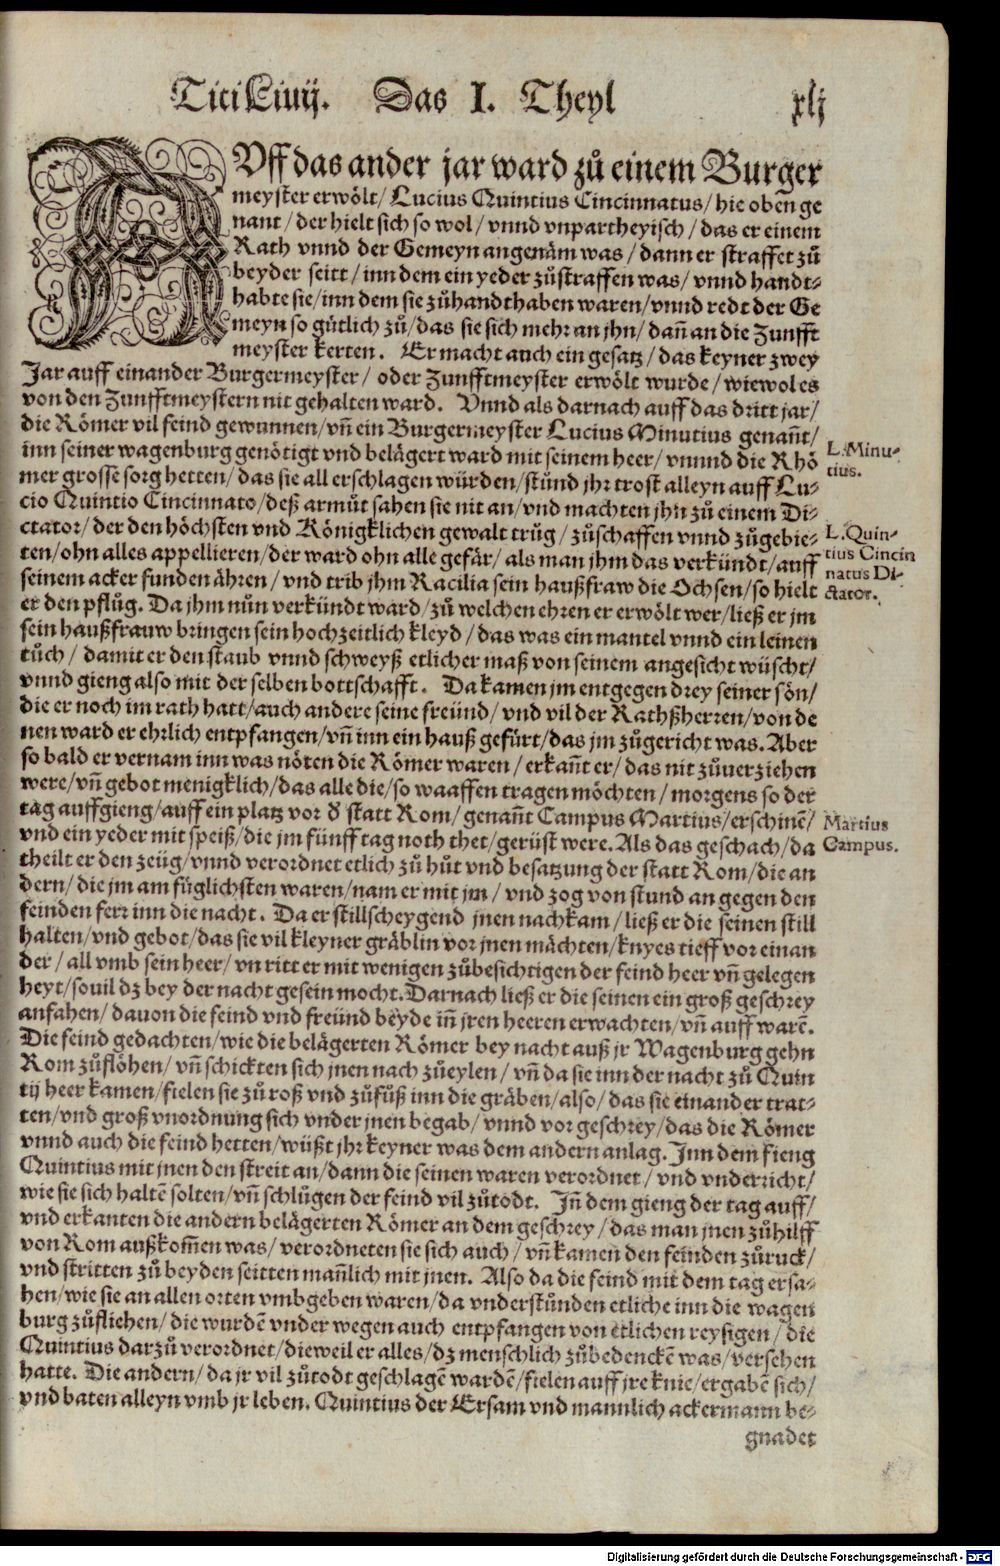 Titi Livij. Das I. Theyl xlj
AVff das ander jar ward zů einem Burger
meyster erwölt/ Lucius Quintius Cincinnatus/ hie oben ge
nant/ der hielt sich so wol/ vnnd vnpartheyisch/ das er einem
Rath vnnd der Gemeyn angenäm was/ dann er straffet zů
beyder seitt/ inn dem ein yeder zůstraffen was/ vnnd handt-
habte sie/ inn dem sie zůhandthaben waren/ vnnd redt der Ge
meyn so gütlich zů/ das sie sich mehr an jhn/ dañ an die Zunfft
meyster kerten. Er macht auch ein gesatz/ das keyner zwey
Jar auff einander Burgermeyster/ oder Zunfftmeyster erwölt wurde/ wiewol es
von den Zunfftmeystern nit gehalten ward. Vnnd als darnach auff das dritt jar/
die Römer vil feind gewunnen/ vñ ein Burgermeyster Lucius Minutius genañt/
inn seiner wagenburg genötigt vnd belägert ward mit seinem heer/ vnnnd die Rhö
mer grosse sorg hetten/ das sie all erschlagen würden/ stůnd jhr trost alleyn auff Lu-
cio Quintio Cincinnato/ deß armůt sahen sie nit an/ vnd machten jhn zů einem Di-
ctator/ der den höchsten vnd Königklichen gewalt trůg/ zůschaffen vnnd zůgebie-
ten/ ohn alles appellieren/ der ward ohn alle gefär/ als man jhm das verkündt/ auff
seinem acker funden ähren/ vnd trib jhm Racilia sein haußfraw die Ochsen/ so hielt
er den pflůg. Da jhm nůn verkündt ward/ zů welchen ehren er erwölt wer/ ließ er jm
sein haußfrauw bringen sein hochzeitlich kleyd/ das was ein mantel vnnd ein leinen
tůch/ damit er den staub vnnd schweyß etlicher maß von seinem angesicht wüscht/
vnnd gieng also mit der selben bottschafft. Da kamen jm entgegen drey seiner sön/
die er noch im rath hatt/ auch andere seine freünd/ vnd vil der Rathßherren/ von de
nen ward er ehrlich entpfangen/ vñ inn ein hauß gefürt/ das jm zůgericht was. Aber
so bald er vernam inn was nöten die Römer waren/ erkañt er/ das nit zůuerziehen
were/ vñ gebot menigklich/ das alle die/ so waaffen tragen möchten/ morgens so der
tag auffgieng/ auff ein platz vor d̕ statt Rom/ genañt Campus Martius/ erschinẽ/
vnd ein yeder mit speiß/ die jm fünff tag noth thet/ gerüst were. Als das geschach/ da
theilt er den zeüg/ vnnd verordnet etlich zů hůt vnd besatzung der statt Rom/ die an
dern/ die jm am füglichsten waren/ nam er mit jm/ vnd zog von stund an gegen den
feinden ferr inn die nacht. Da er stillscheygend jnen nachkam/ ließ er die seinen still
halten/ vnd gebot/ das sie vil kleyner gräblin vor jnen mächten/ knyes tieff vor einan
der/ all vmb sein heer/ vn ritt er mit wenigen zůbesichtigen der feind heer vñ gelegen
heyt/ souil dz bey der nacht gesein mocht. Darnach ließ er die seinen ein groß geschrey
anfahen/ dauon die feind vnd freünd beyde iñ jren heeren erwachten/ vñ auff warẽ.
Die feind gedachten/ wie die belägerten Römer bey nacht auß jr Wagenburg gehn
Rom zůflöhen/ vñ schickten sich jnen nach zůeylen/ vñ da sie inn der nacht zů Quin
tij heer kamen/ fielen sie zů roß vnd zůfůß inn die gräben/ also/ das sie einander trat-
ten/ vnd groß vnordnung sich vnder jnen begab/ vnnd vor geschrey/ das die Römer
vnnd auch die feind hetten/ wüßt jhr keyner was dem andern anlag. Inn dem fieng
Quintius mit jnen den streit an/ dann die seinen waren verordnet/ vnd vnderricht/
wie sie sich haltẽ solten/ vñ schlůgen der feind vil zůtodt. Iñ dem gieng der tag auff/
vnd erkanten die andern belägerten Römer an dem geschrey/ das man jnen zůhilff
von Rom außkom̃en was/ verordneten sie sich auch/ vñ kamen den feinden zůruck/
vnd stritten zů beyden seitten mañlich mit jnen. Also da die feind mit dem tag ersa-
hen/ wie sie an allen orten vmbgeben waren/ da vnderstůnden etliche inn die wagen
burg zůfliehen/ die wurdẽ vnder wegen auch entpfangen von etlichen reysigen/ die
Quintius darzů verordnet/ dieweil er alles/ dz menschlich zůbedenckẽ was/ versehen
hatte. Die andern/ da jr vil zůtodt geschlagẽ wardẽ/ fielen auff jre knie/ ergabẽ sich/
vnd baten alleyn vmb jr leben. Quintius der Ersam vnd mannlich ackermann be-
gnadet
L. Minu-
tius.
L. Quin-
tius Cincin
natus Di-
ctator.
Martius
Campus.
Digitalisierung gefördert durch die Deutsche Forschungsgemeinschaft - DFG